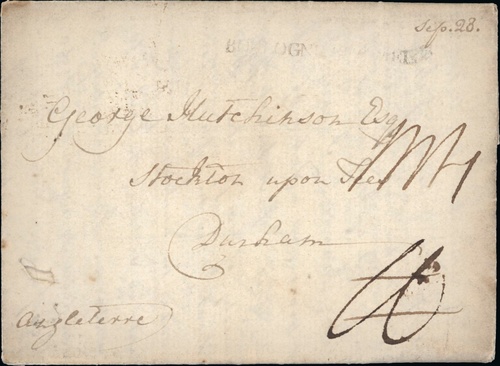 Sep. 28.
George Hutchinson Esq
Stockton upon Tees
Durham
Angleterre